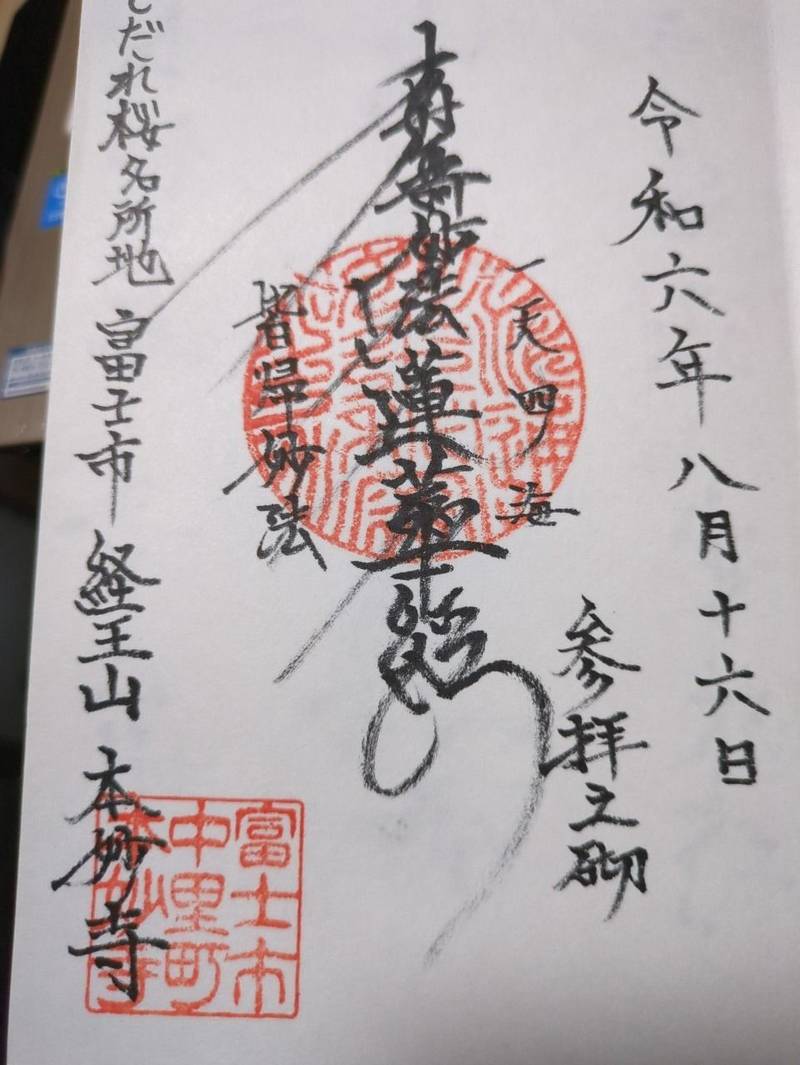 令和六年八月十六日
参拝之砌
一天四海
南無妙法蓮華経
皆帰妙法
しだれ桜名所地 富士市 経王山 本妙寺
富士市
中里町
本妙寺